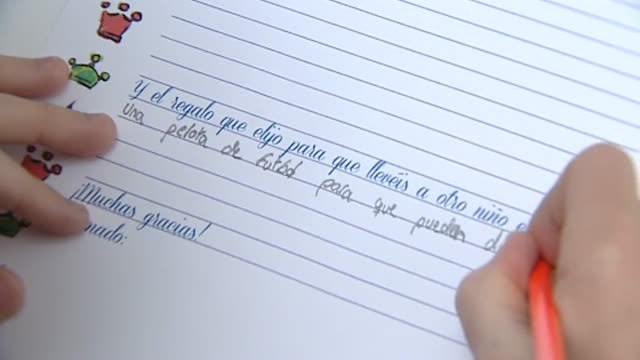 Y el regalo que elijo para que llevéis a otro niño
una pelota de futbol para que puedan
¡Muchas gracias!
mado: